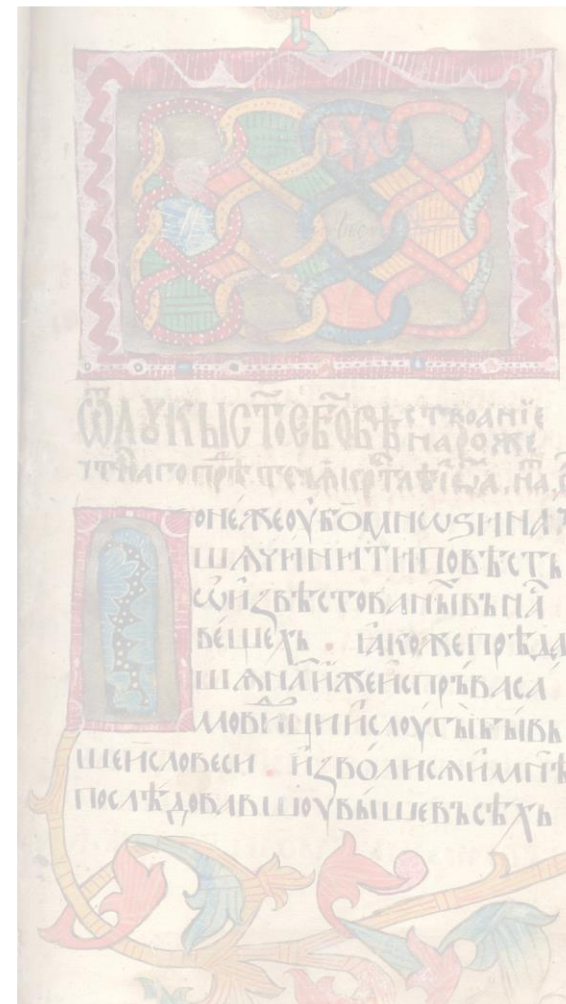 ѾЛꙊКЫСТ҃ОЕБⷧ҇ОВѢСТВОАНЇЕ
НАРОЖЕ
ОНЕЖЕОУБОМНѠЅИНА
ШѦЧИНИТИПОВѢСТЬ
ѠИꙁВѢСТОВАНЫⷯВЪНА
ВЕЩЕХЪ · ꙖКОЖЕПРѢДА
ШѦНАⷨИЖЕИСПРЬВАСА
МОВИⷣЦИИСЛОУГЫБЫВЬ
ШЕИСЛОВЕСИ · ИꙁВОЛИСѦИМНѢ
ПОСЛѢДОВАВШОУВЫШЕВЪСѢХЪ